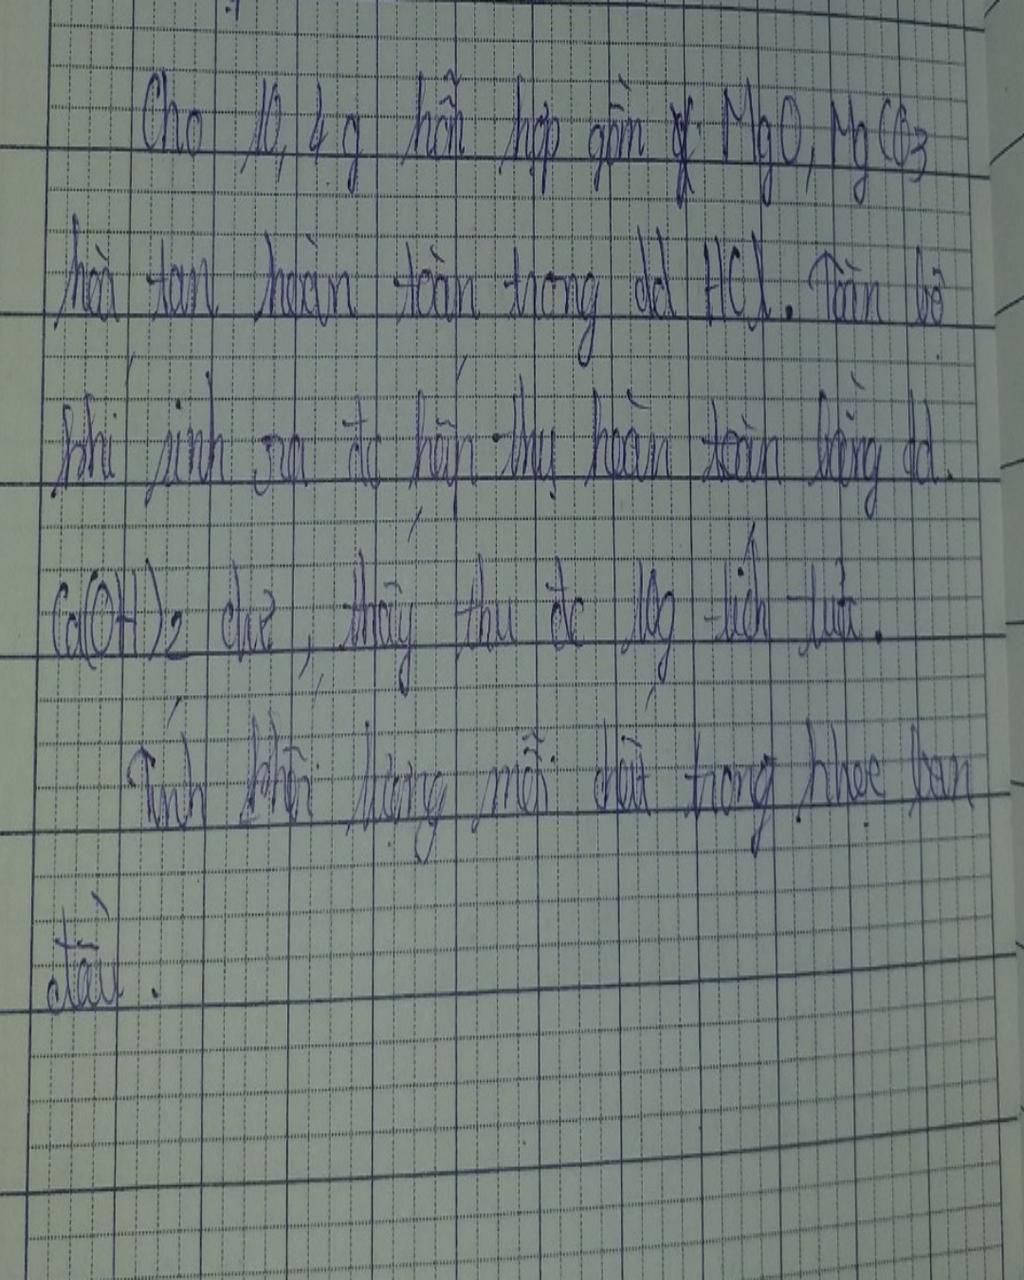 Cho 10,4 g hỗn hợp gồm MgO, MgCO3
hoà tan hoàn toàn trong dd HCl. Toàn bộ
khí sinh ra đc hấp thụ hoàn toàn bằng dd
Ca(OH)2 dư, thấy thu đc 10g kết tủa.
Tính khối lượng mỗi chất trong hh ban
đầu.